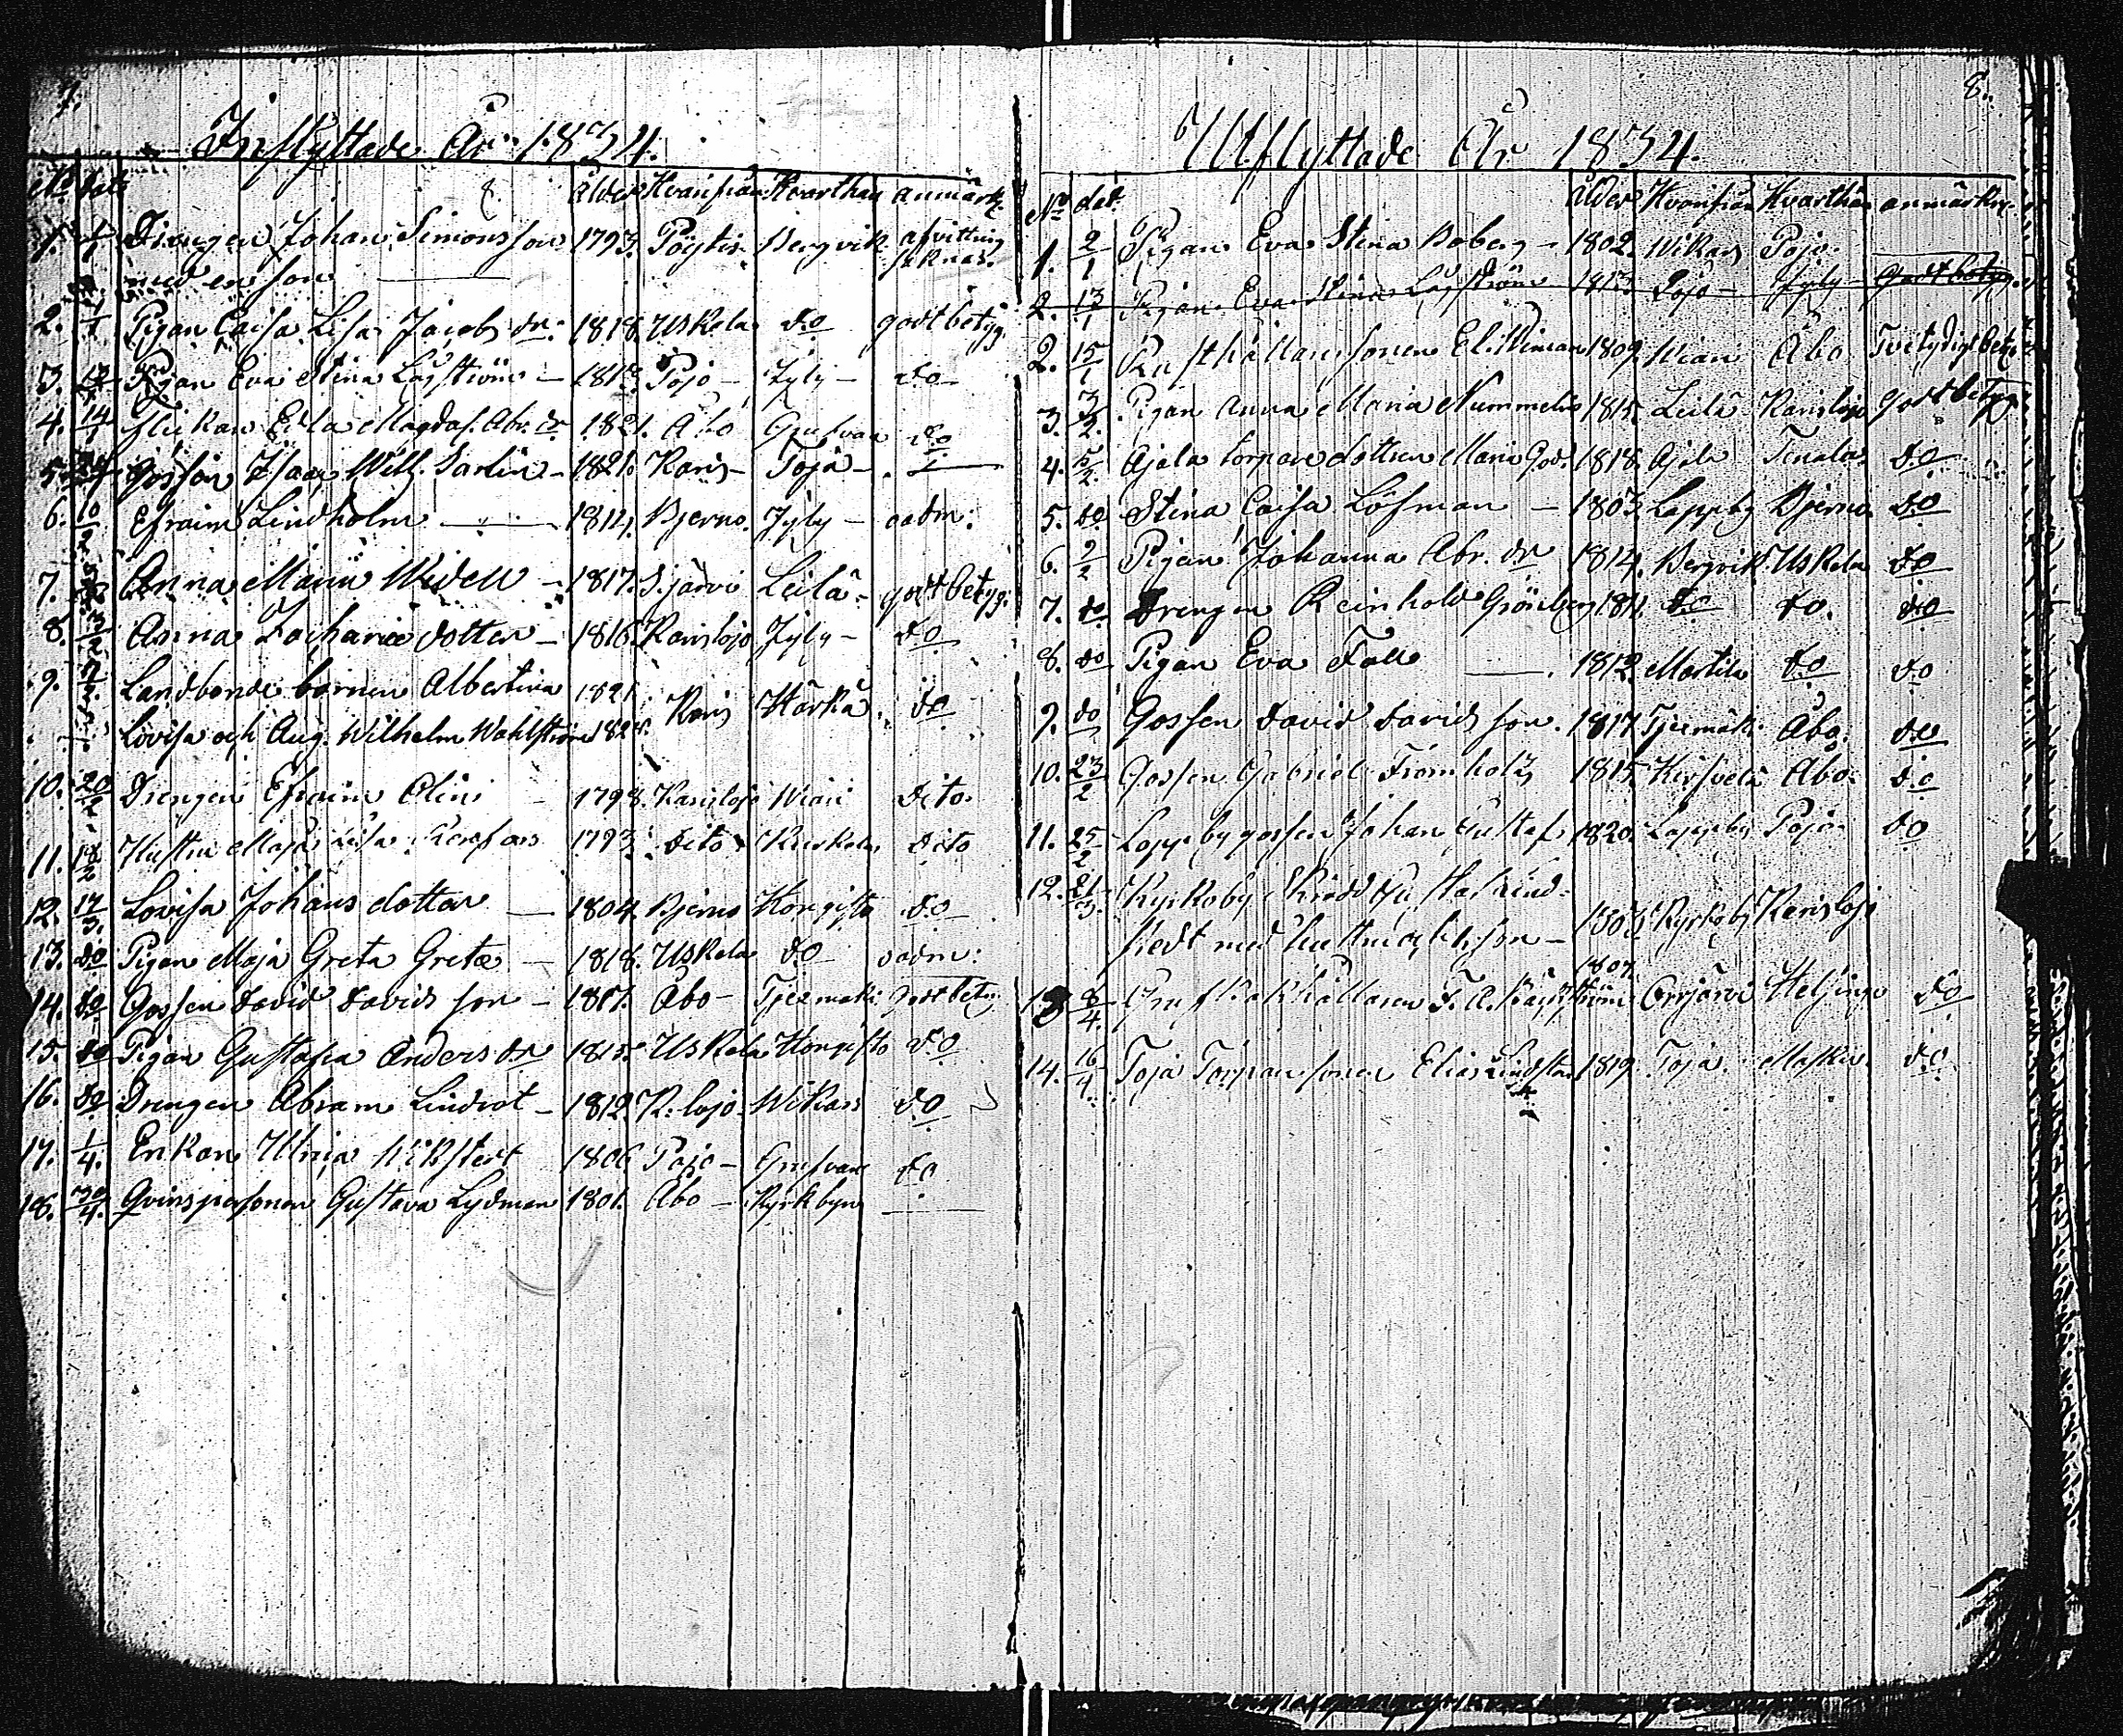 7.
Inflyttade År 1834.
No dat. Ålder Hvarifrån Hvarthän anmärk.
1. 1/1 Drengen Johan Simonsson 1793. Pöytis Bergvik afvittring saknas.
med en son
2. 1/1 Pigan Caisa Lisa Jacobs dr: 1818. Uskela do godt betyg.
3. Pigan Eva Stina Lagström – 1813. Pojo – Jyly – do
4. 14/1 Flickan Edla Magdal. Abr. dr 1821. Åbo Grufvan do
5. Gossen Isaac Wilh. Sarlin – 1821. Karis – Toja –
6. 10/2 Efraim Lindholm 1814. Bjerno. Jyly – oadm:
7. Anna Maria Widell – 1817. S. järvi Leilä – godt betyg.
8. Anna Zachariæ dotter – 1816. Karislojo Jyly – do
9. Landbonde barnen Albertina 1821. Karis Härkä do
Lovisa och Aug. Wilhelm Wahlström 182
10. 20/2 Drengen Efraim Olin 1798. Karislojo Wiari dito.
11. Hustru Maja Lisa 1793. dito Kiskela dito
12. 17/3. Lovisa Johans dotter – 1804. Bjerno Hongisto do
13. do Pigan Maja Greta Gretæ – 1818. Uskela do oadm:
14. do Gossen David Davids son – 1817. Åbo – Tjermäki godt betyg
15. do Pigan Gustafva Anders dr 1815. Uskela Hongisto do
16. do Drengen Abram Lindrot – 1812. K. lojo. Wikars do
17. 1/4. Enkan Ulrica 1806 Pojo – Grufvan do
18. 30/4. Qvinspersonen Gustava Lydman 1801. Åbo – Kyrkbyn
8.
Utflyttade År 1834.
No dat. Ålder Hvarifrån Hvarthän anmärkn.
1. 2/1 Pigan Eva Stina Boberg – 1802. Wikars Pojo.
2. 13/1 Pigan Eva Stina Lagström 1813. Pojo – Jyly – Godt betyg.
2. 15/1 Rusthållaresonen El. Widman 1809. Wiari Åbo Tvetydigt betyg
3. 3/2. Pigan Anna Maria Nummelin 1815. Leilä Karislojo Godt betyg
4. 5/2. Ajala torpare dottren Maria God. 1818. Ajala Tenala do
5. do Stina Caisa Löfman – 1803. Lappby Bjerno do
6. 9/2 Pigan Johanna Abr. dr 1814. Bergvik Uskela do
7. do Drengen Reinhold Grönberg 1811. do do. do
8. do Pigan Eva Fall 1812. Martila do do
9. do Gossen David Davids son. 1817. Tjermäki Åbo. do
10. 23/2 Gossen Gabriel Fromholtz 1815. Kirfvelä Åbo. do
11. 25/2 Lappby gossen Johan Gustaf 1820. Lappby Pojo do
12. 21/3. Kyrkoby Skrädd. Gustaf Lind-
stedt med hustru och son – 1803. Kyrkoby Karislojo
13 8/4. Grufbokhållaren F. A. 1807. Orijärvi Helsinge do
14. 16/4. Toja Torparsonen Elias 1819. Toja. Masku. do